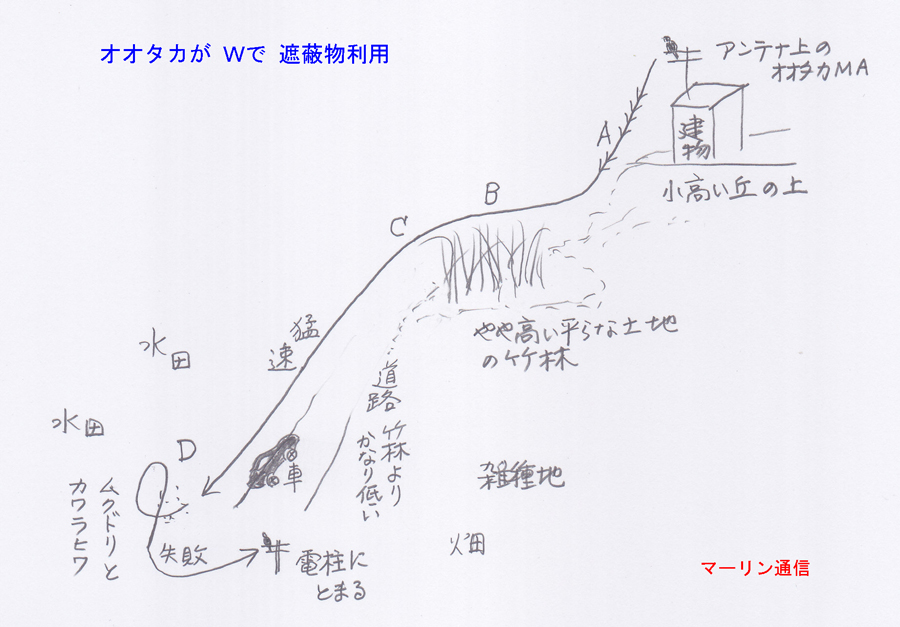 オオタカが Wで 遮蔽物利用
アンテナ上の
オオタカMA
建物
小高い丘の上
A
B
C
やや高い平らな土地
の竹林
猛速
水田
水田
道路 竹林より
かなり低い
D
車
雑種地
ムクドリと
カワラヒワ
失敗
電柱に
とまる
畑
マーリン通信